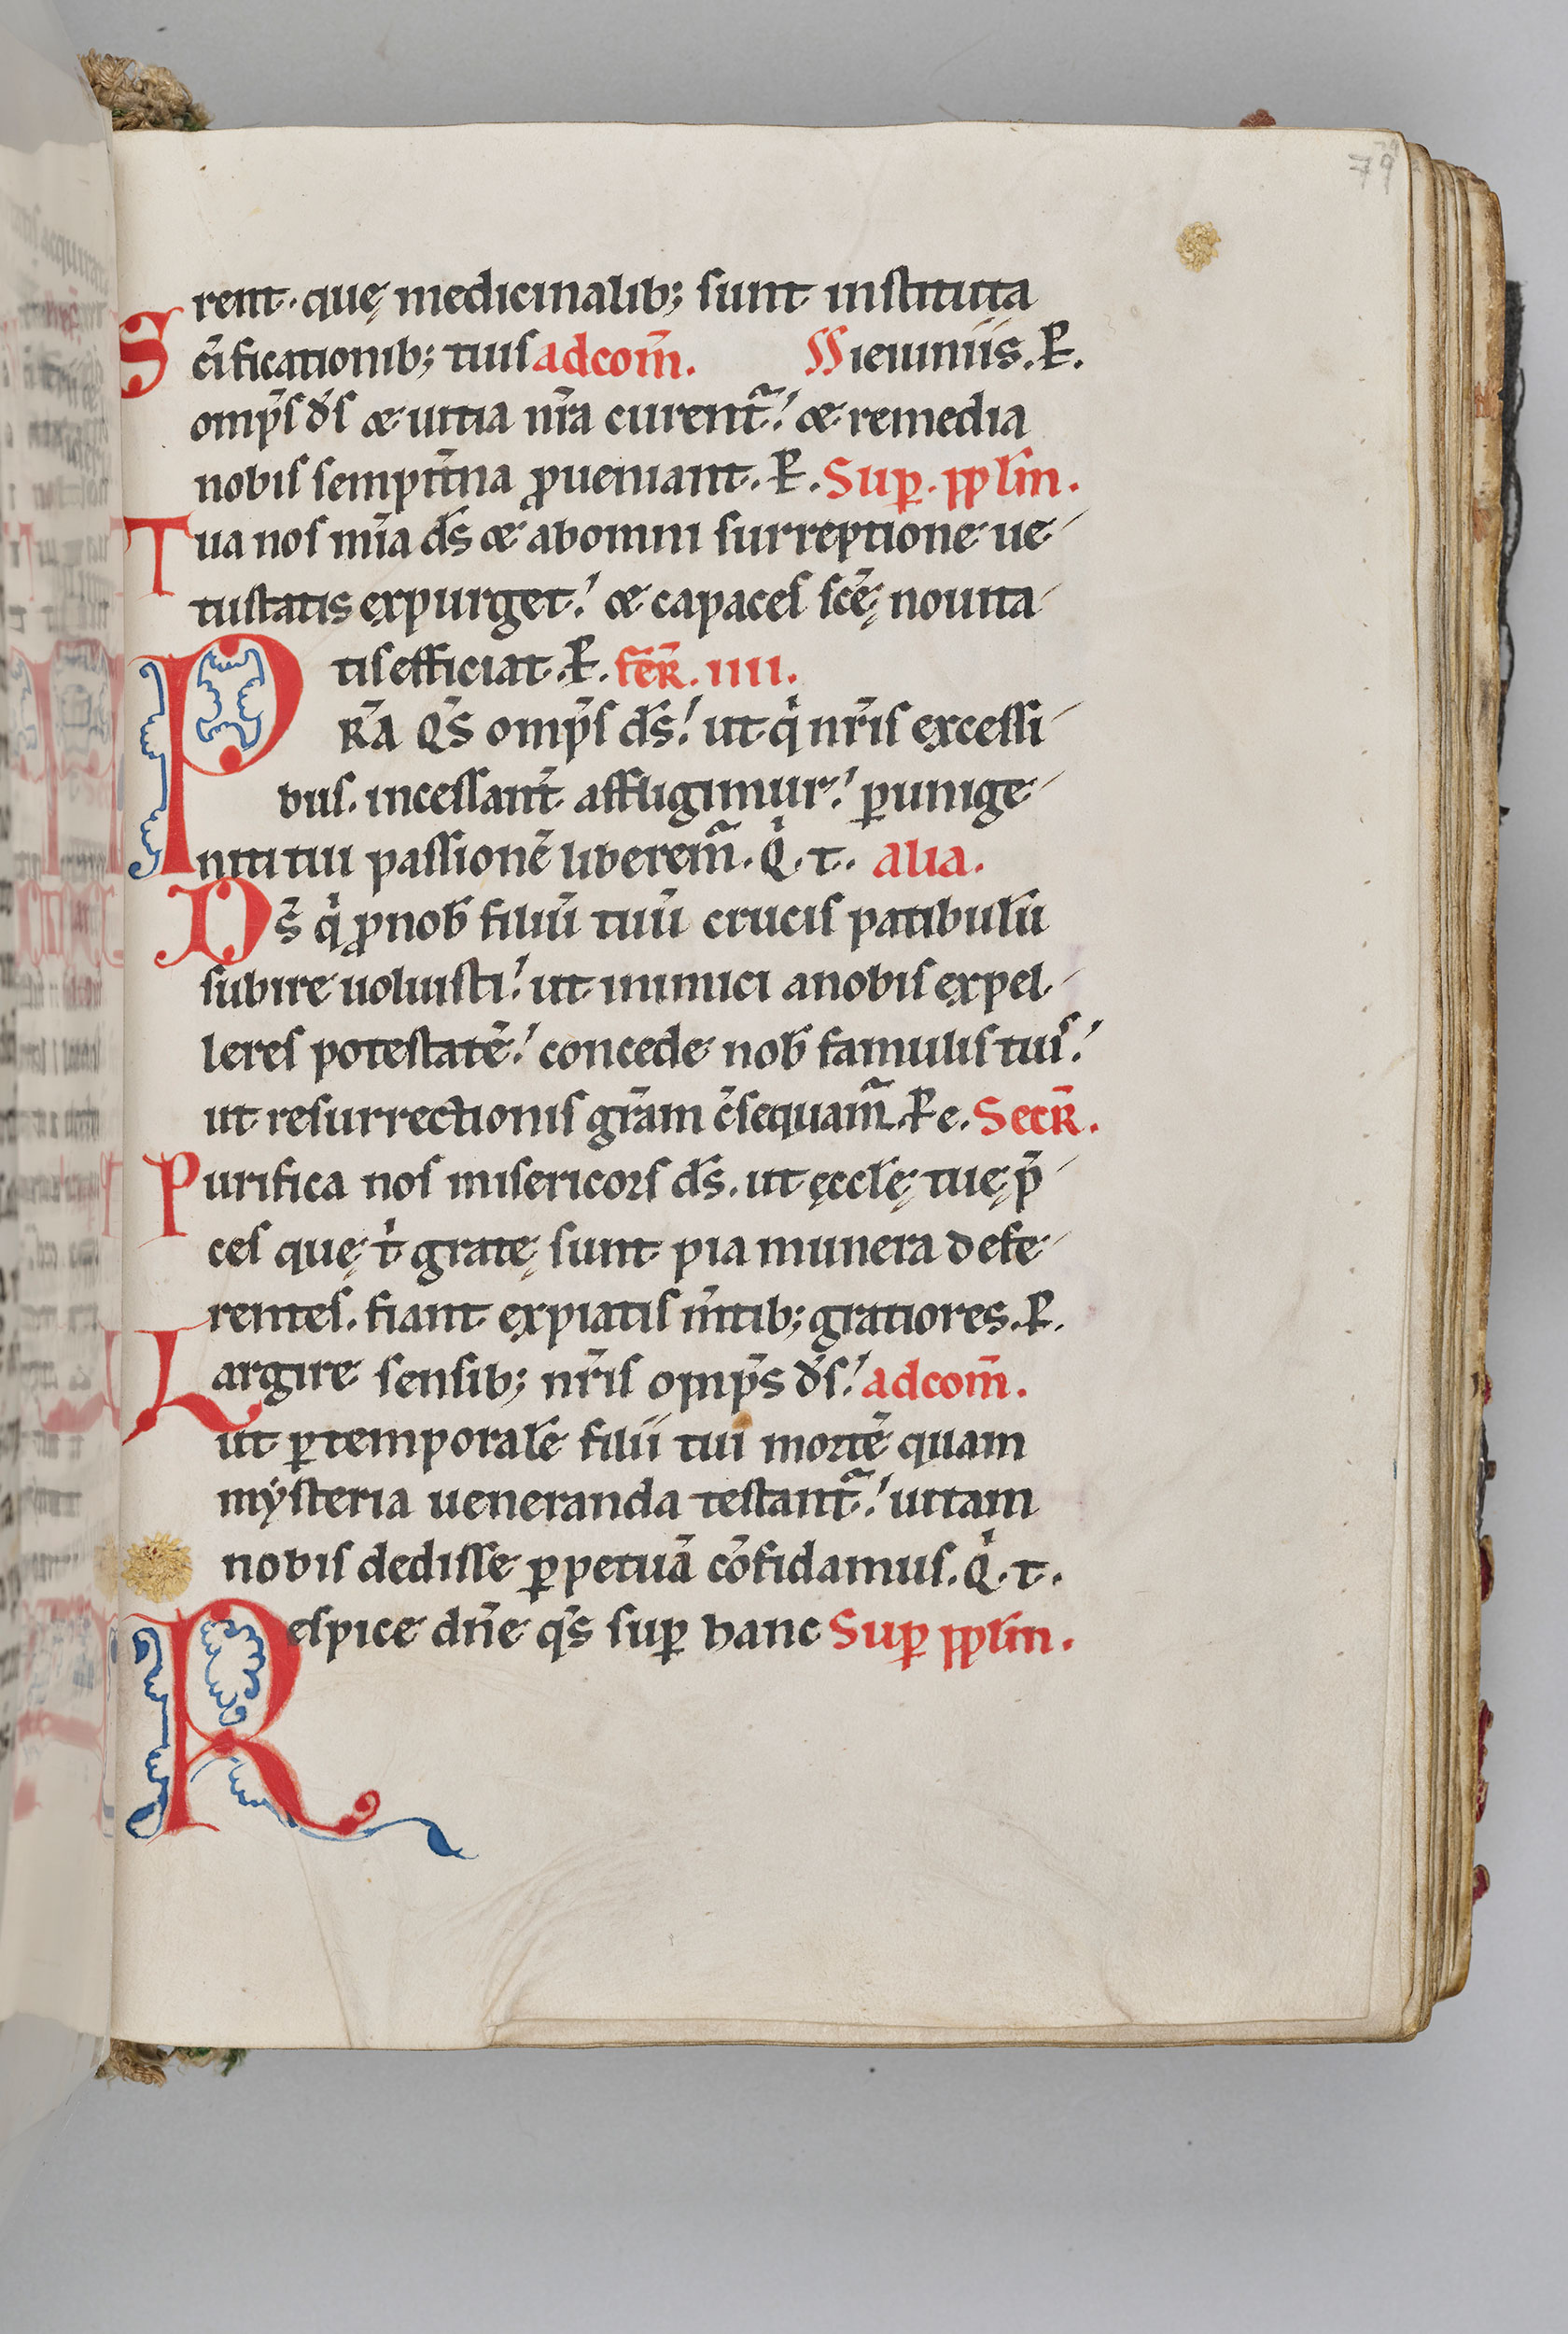 79
rent. quę medicinalib; sunt instituta
ieiuniis. P.
Sc̄ificationib; tuis ad com̄.
omp̄s ds̄ & uitia nr̄a curent᷑. & remedia
nobis sempit̄na ꝓueniant. P. Sup̱. pplm̄.
Tua nos mīa ds̄ & ab omni surreptione ue-
tustatis expurget. & capaces scę̄ nouita-
tis efficiat. P. fer̄. IIII.
PRA Qs̄ omp̄s ds̄. ut q̇ nr̄is excessi-
bus. incessant̄ affligimur. ꝑ unige-
niti tui passionē liberem᷑. Q̇. t. alia.
Ds̄ q̇ ꝓ nob̄ filiū tuū crucis patibulū
subire uoluisti. ut inimici a nobis expel-
leres potestatē. concede nob̄ famulis tuis.
ut resurrectionis grām c̄sequam᷑. P e. Secr̄.
Purifica nos misericors ds̄. ut ęcclę̄ tuę p̄-
ces quę ṫ gratę sunt pia munera defe-
rentes. fiant expiatis m̄tib; gratiores. P.
Largire sensib; nr̄is omp̄s ds̄. ad com̄.
ut ꝑ temporalē filii tui mortē quam
mẏsteria ueneranda testant᷑. uitam
nobis dedisse ꝑpetuā cōfidamus. Q̇. t.
Respice dn̄e qs̄ suꝑ hanc Suꝑ pplm̄.